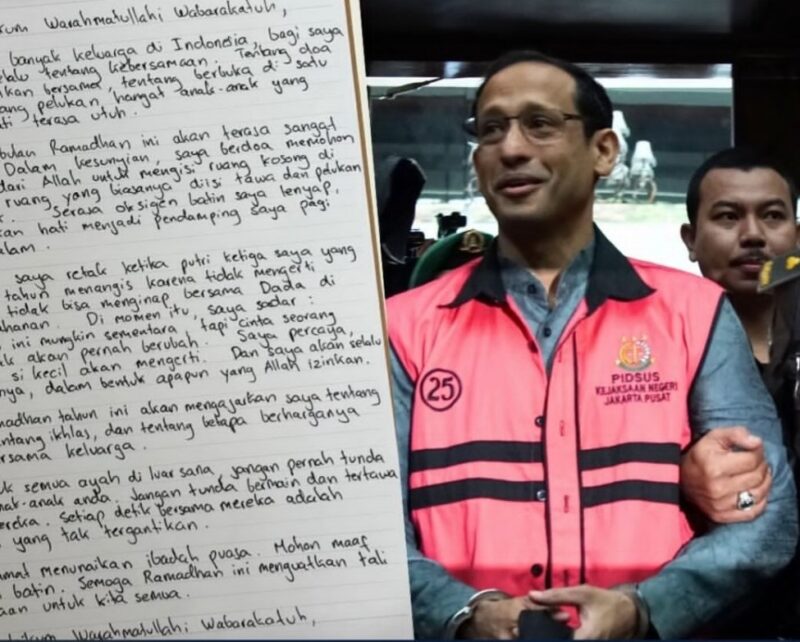 kum Warahmatullahi Wabarakatuh,
banyak keluarga di Indonesia, bagi saya
lalu tentang kebersamaan. Tentang doa
kan bersama, tentang berbuka di satu
ang pelukan, hangat anak-anak yang
ti terasa utuh.
bulan Ramadhan ini akan terasa sangat
Dalam kesunyian, saya berdoa memohon
dari Allah untuk mengisi ruang kosong di
ruang yang biasanya diisi tawa dan pelukan
k. Serasa oksigen batin saya lenyap,
kan hati menjadi pendamping saya pagi
alam.
saya retak ketika putri ketiga saya yang
tahun menangis karena tidak mengerti
tidak bisa menginap bersama Dada di
ahanan. Di momen itu, saya sadar:
ini mungkin sementara, tapi cinta seorang
ak akan pernah berubah. Saya percaya,
si kecil akan mengerti. Dan saya akan selalu
nya, dalam bentuk apapun yang Allah izinkan.
madhan tahun ini akan mengajarkan saya tentang
ntang ikhlas, dan tentang betapa berharganya
ersama keluarga.
uk semua ayah di luar sana, jangan pernah tunda
nak-anak anda. Jangan tunda bermain dan tertawa
ereka. Setiap detik bersama mereka adalah
yang tak tergantikan.
amat menunaikan ibadah puasa. Mohon maaf
batin. Semoga Ramadhan ini menguatkan tali
aan untuk kita semua.
kum Warahmatullahi Wabarakatuh,
25
PIDSUS
KEJAKSAAN NEGERI
JAKARTA PUSAT